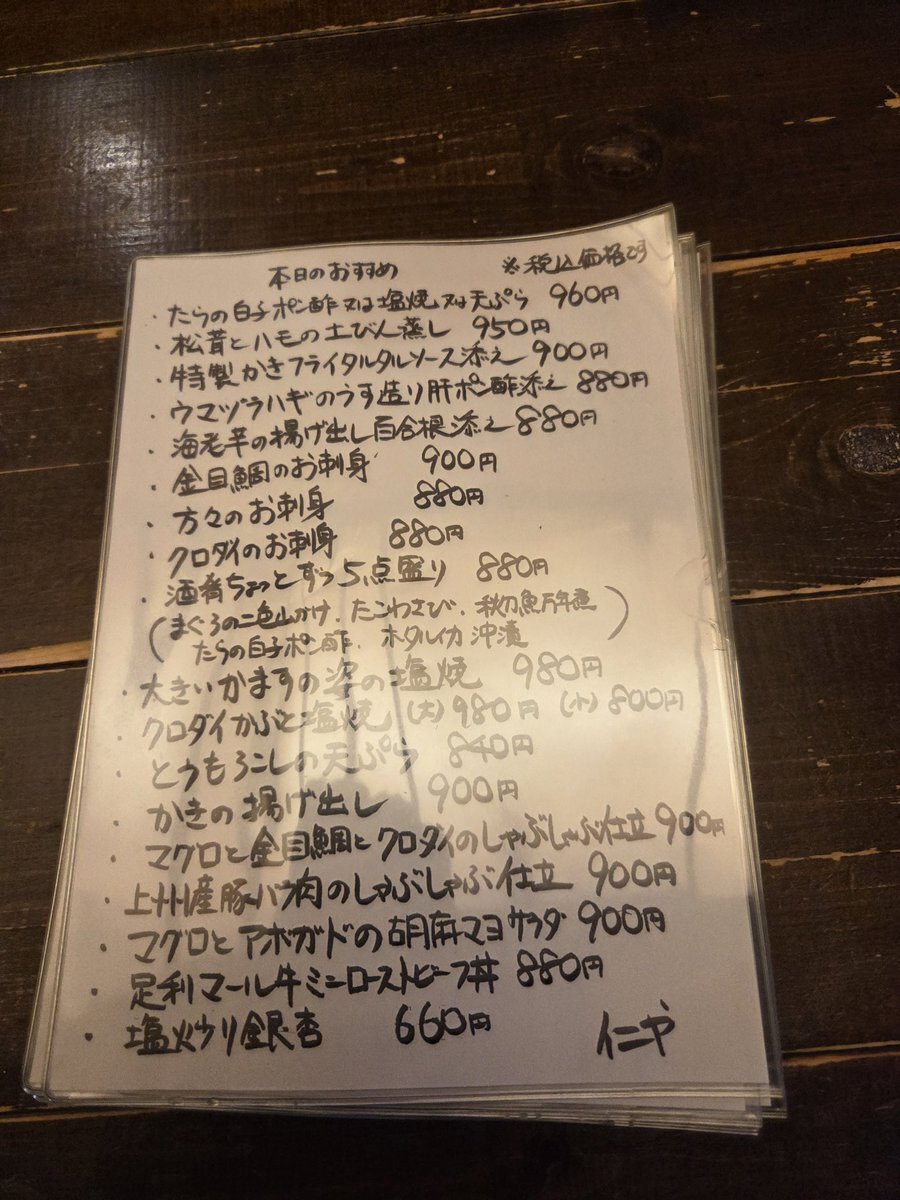 本日のおすすめ ※税込価格です
・たらの白子ポン酢又は塩焼又は天ぷら 960円
・松茸とハモの土びん蒸し 950円
・特製かきフライタルタルソース添え 900円
・ウマヅラハギのうす造り肝ポン酢添え 880円
・海老芋の揚げ出し百合根添え 880円
・金目鯛のお刺身 900円
・方々のお刺身 880円
・クロダイのお刺身 880円
・酒肴ちょっとずつ5点盛り 880円
(まぐろの二色山かけ、たこわさび、秋刀魚万年煮
たらの白子ポン酢、ホタルイカ沖漬)
・大きいかますの姿の塩焼 980円
・クロダイかぶと塩焼 (大)980円 (小)800円
・とうもろこしの天ぷら 840円
・かきの揚げ出し 900円
・マグロと金目鯛とクロダイのしゃぶしゃぶ仕立 900円
・上州産豚バラ肉のしゃぶしゃぶ仕立 900円
・マグロとアボガドの胡麻マヨサラダ 900円
・足利マール牛ミニローストビーフ丼 880円
・塩炒り銀杏 660円 仁や